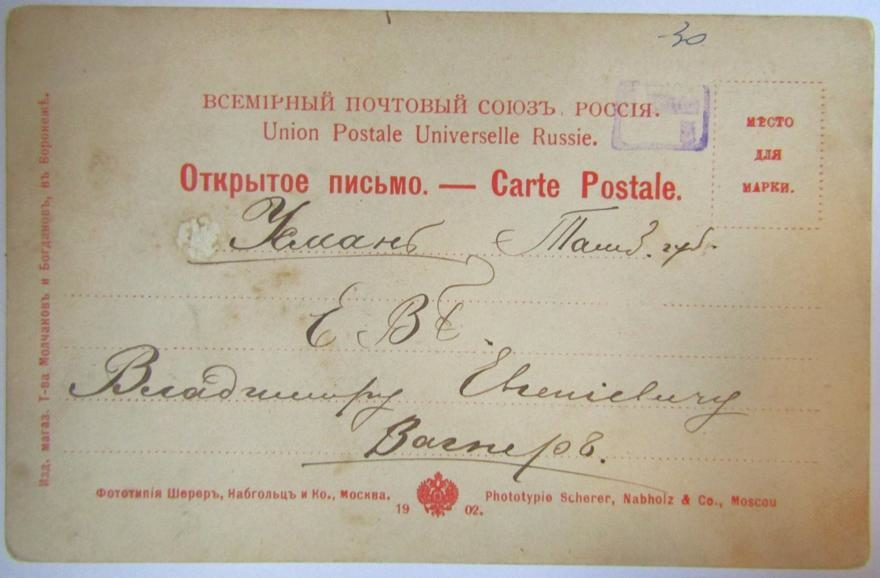 30
ВСЕМІРНЫЙ ПОЧТОВЫЙ СОЮЗЪ, РОССІЯ.
Union Postale Universelle Russie.
Открытое письмо. — Carte Postale.
МѢСТО
ДЛЯ
МАРКИ.
Усмань Тамб. губ.
Е В Б.
Владиміру Евгеніевичу
Вагнеръ.
Изд. магаз. Т-ва Молчановъ и Богдановъ, въ Воронежѣ.
Фототипія Шереръ, Набгольцъ и Ко., Москва. 1902. Phototypie Scherer, Nabholz & Co., Moscou